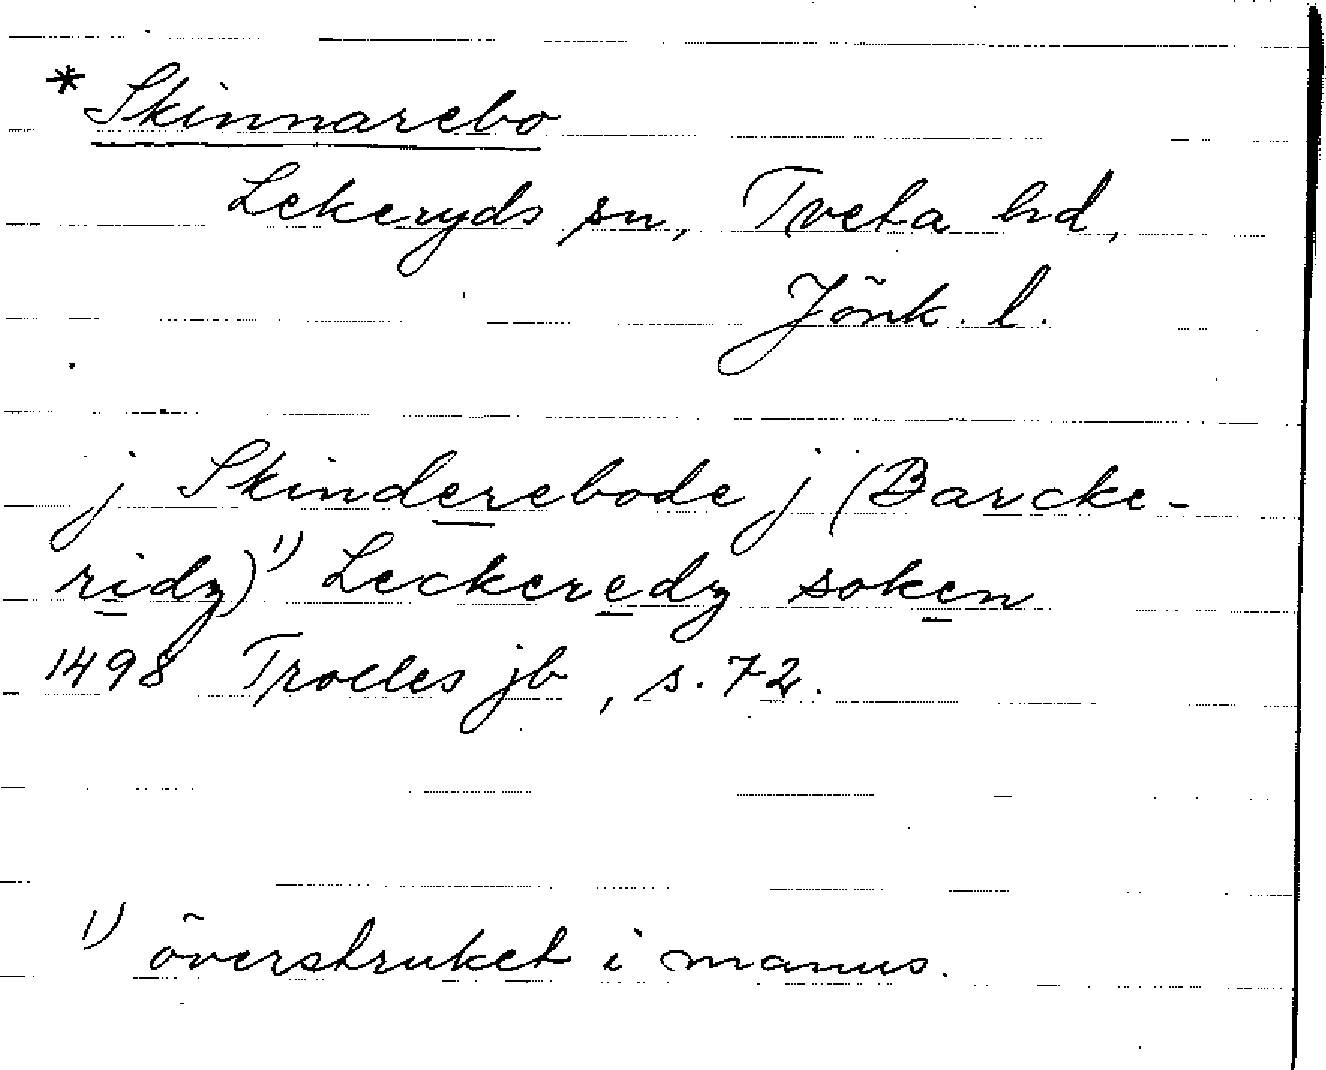 * Skinnarebo
Lekeryds sn, Tveta hd,
Jönk. l.
j Skinderebode j (Barcke-
ridz)¹⁾ Leckeredz soken
1498 Trolles jb, s. 72.
¹⁾ överstruket i manus.